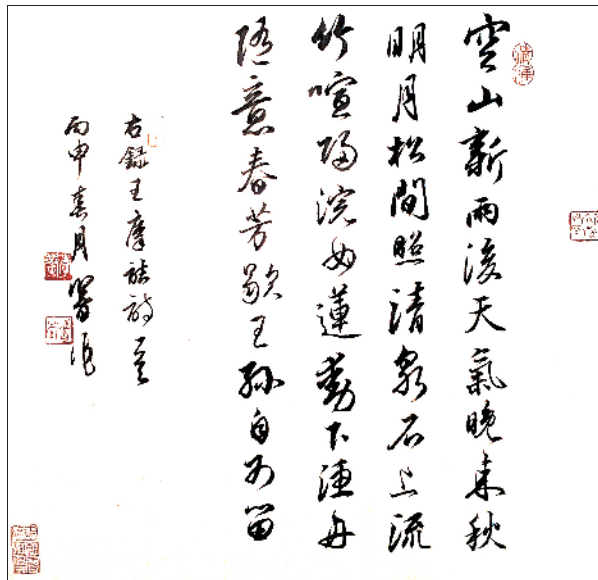 空山新雨後天氣晚来秋
明月松間照清泉石上流
竹喧歸浣女蓮動下漁舟
随意春芳歇王孫自可留
右録王摩詰詩一首
丙申春月